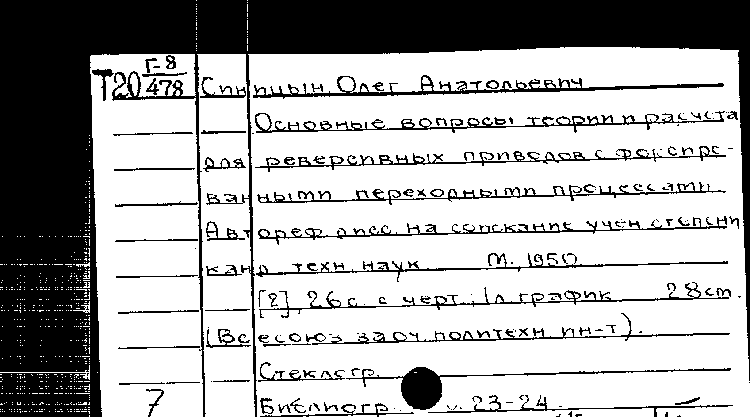 Г-8
Т20 478 Синицын Олег Анатольевич
Основные вопросы теории и расчета
для реверсивных приводов с форсиро-
ванными переходными процессами
Автореф дисс. на соискание учен степени
канд техн. наук М., 1950
[2], 26 с. с черт., 1 л график 28 см.
(Всесоюз заоч. политехн ин-т).
Стеклогр.
7 Библиогр. 23-24